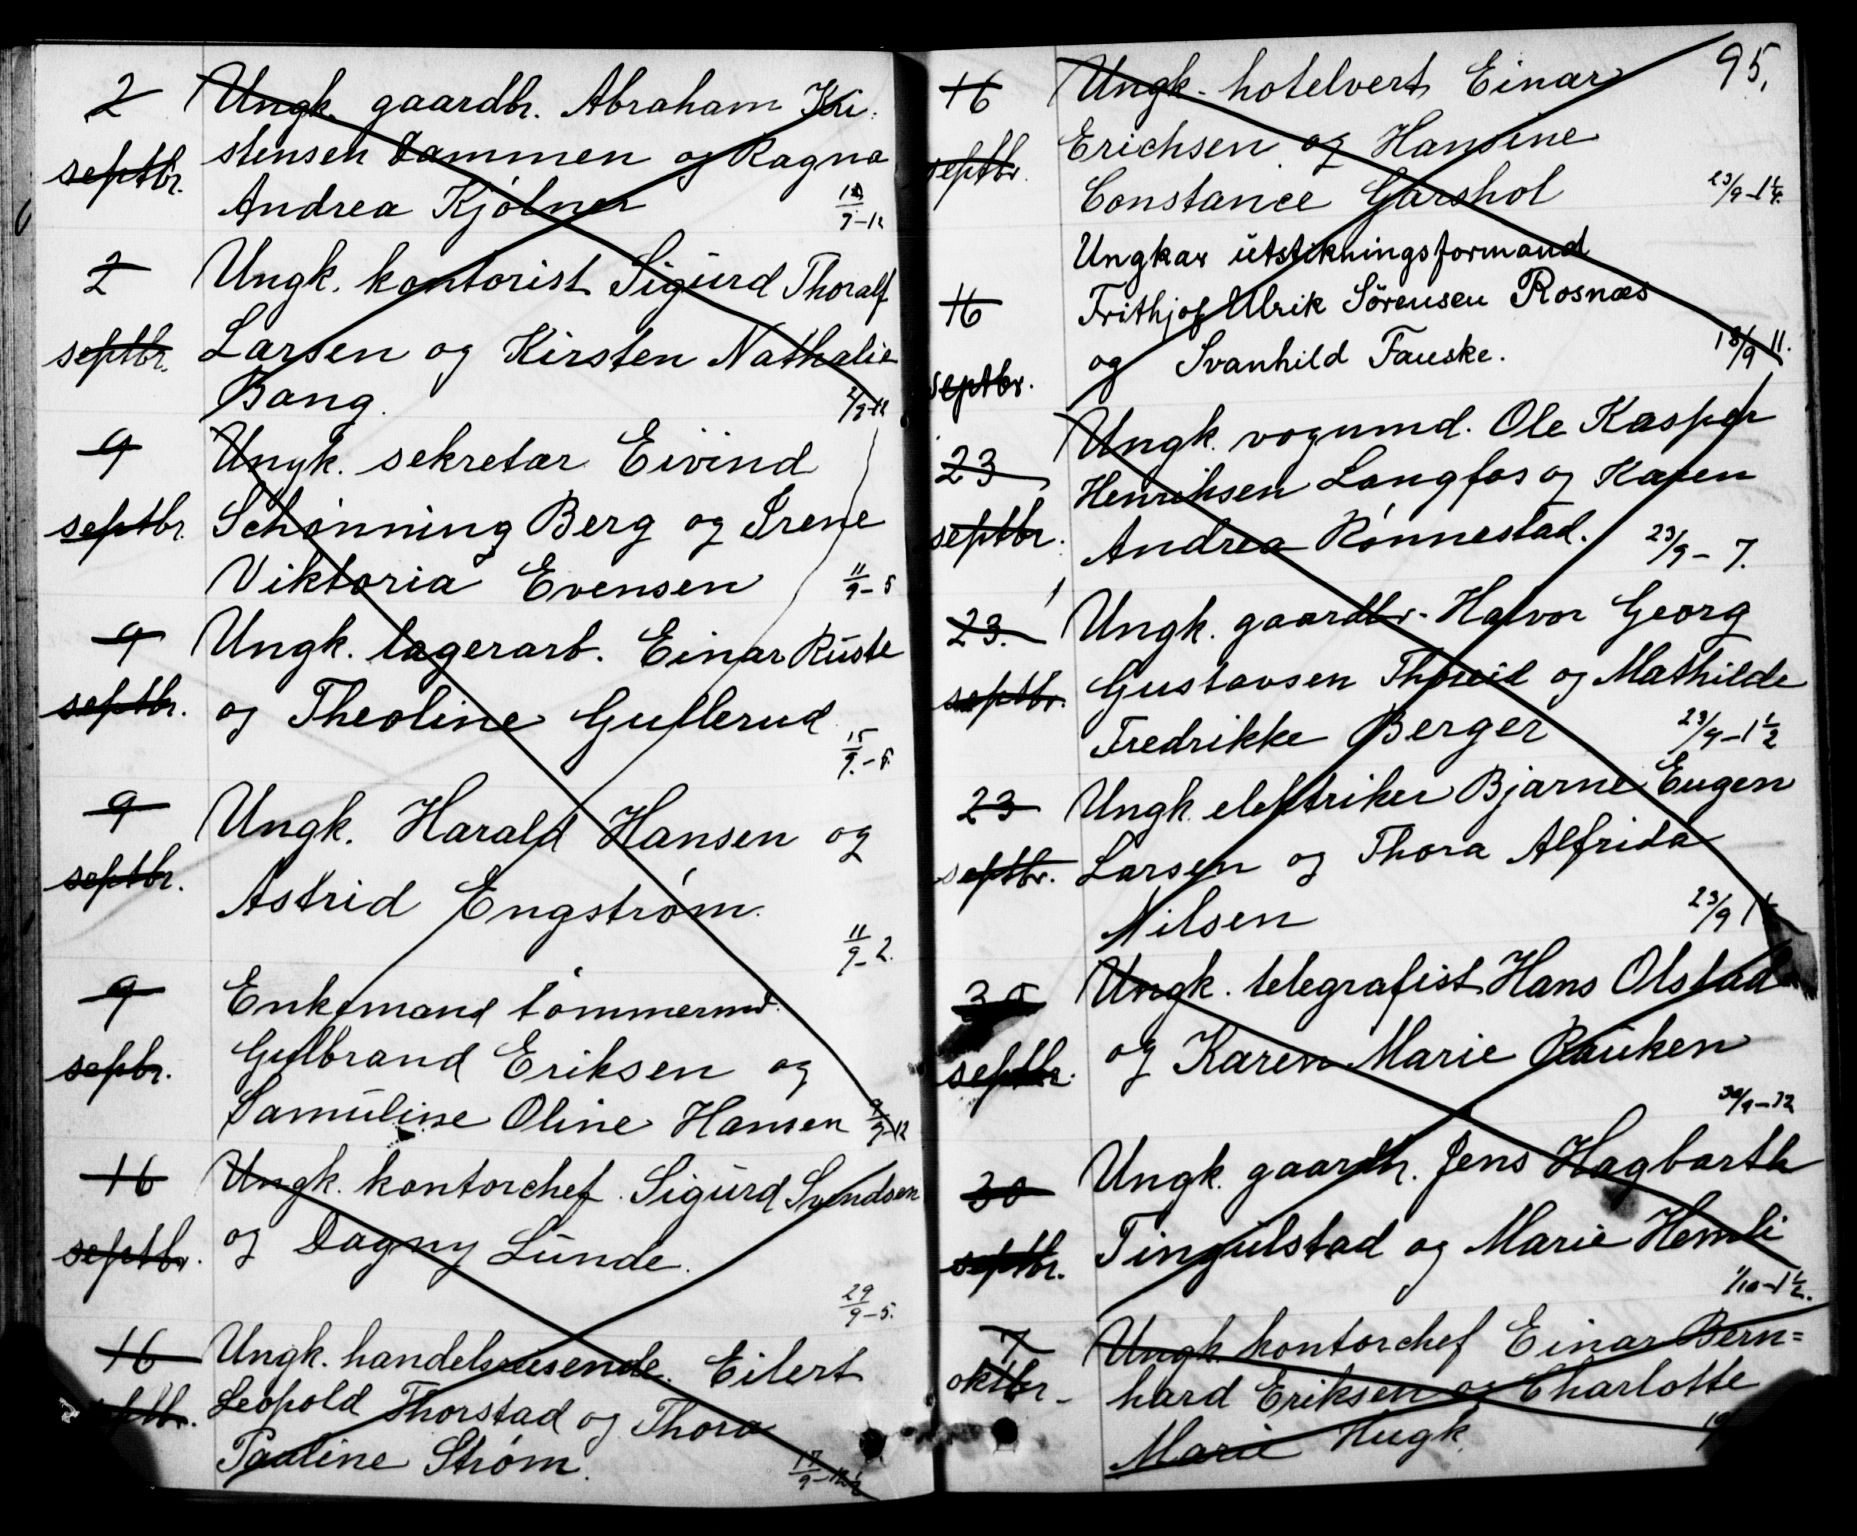 2 Ungk. gaardbr. Abraham Kri-
septbr. stensen Dammen og Ragna
Andrea Kjölner 12/9-12
2 Ungk. kontorist Sigurd Thoralf
septbr. Larsen og Kirsten Nathalie
Bang. 2/9-12
9 Ungk. sekretær Eivind
septbr. Schønning Berg og Irene
Viktoria Evensen 11/9-5
9 Ungk. lagerarb. Einar Ruste
septbr. og Theoline Gullerud
15/9.-5.
9 Ungk. Harald Hansen og
septbr. Astrid Engstrøm.
11/9-2.
9 Enkemand tømmermd.
sepbr. Gulbrand Eriksen og
Samuline Oline Hansen 9/9-12
16 Ungk. kontorchef. Sigurd Svendsen
septbr. og Dagny Lunde.
29/9-5.
16 Ungk. handelsreisende. Eilert
septbr. Leopold Thorstad og Thora
Pauline Strøm. 17/9-12½
95.
16 Ungk. hotelvert Einar
septbr. Erichsen og Hansine
Constance Garshol 23/9-1¼.
Ungkar utstikningsformand
16 Frithjof Ulrik Sörensen Rosnæs
septbr. og Svanhild Fauske. 18/9 11.
23 Ungk. vognmd. Ole Kasper
Henriksen Langfos og Karen
septbr. Andrea Rønnestad. 23/9-7.
23. Ungk. gaardbr. Halvor Georg
septbr. Gustavsen Thoveil og Mathilde
Fredrikke Berger 23/9-1½
23 Ungk. elektriker Bjarne Eugen
septbr. Larsen og Thora Alfrida
Nilsen 23/9
30 Ungk. telegrafist Hans Olstad
septbr. og Karen Marie Rauken
30/9-12
30 Ungk. gaardbr. Jens Hagbarth
septbr. Tingulstad og Marie Hemli
1/10-1½.
7 Ungk. kontorchef Einar Bern=
oktbr. hard Eriksen og Charlotte
Marie Hugk.